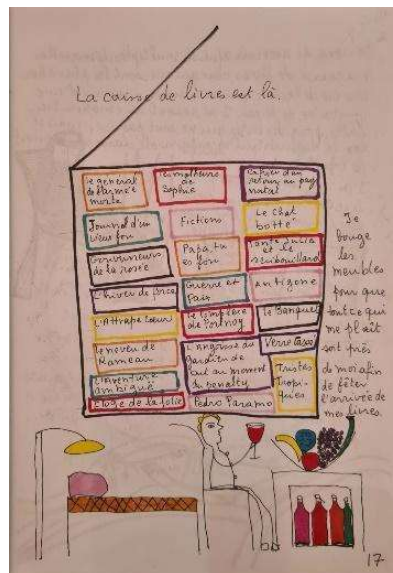 La caisse de livres est là.
Le général
de l'armée
morte
Les malheurs
de
Sophie
Cahier d'un
retour au pays
natal
Journal d'un
vieux fou
Fictions
Le chat
botté
Gouverneurs
de la rosée
Papa, tu
es fou
Tante Julia
et le
scribouillard
L'hiver de force
Guerre et
Paix
Antigone
L'Attrape cœur
Le complexe
de Portnoy
Le Banquet
Le neveu de
Rameau
L'angoisse du
gardien de
but au moment
du penalty
Verre Cassé
L'aventure
ambiguë
Tristes
Tropi-
ques
Éloge de la folie
Pedro Paramo
Je
bouge
les
meubles
pour que
tout ce qui
me plaît
soit près
de moi afin
de fêter
l'arrivée de
mes livres.
17